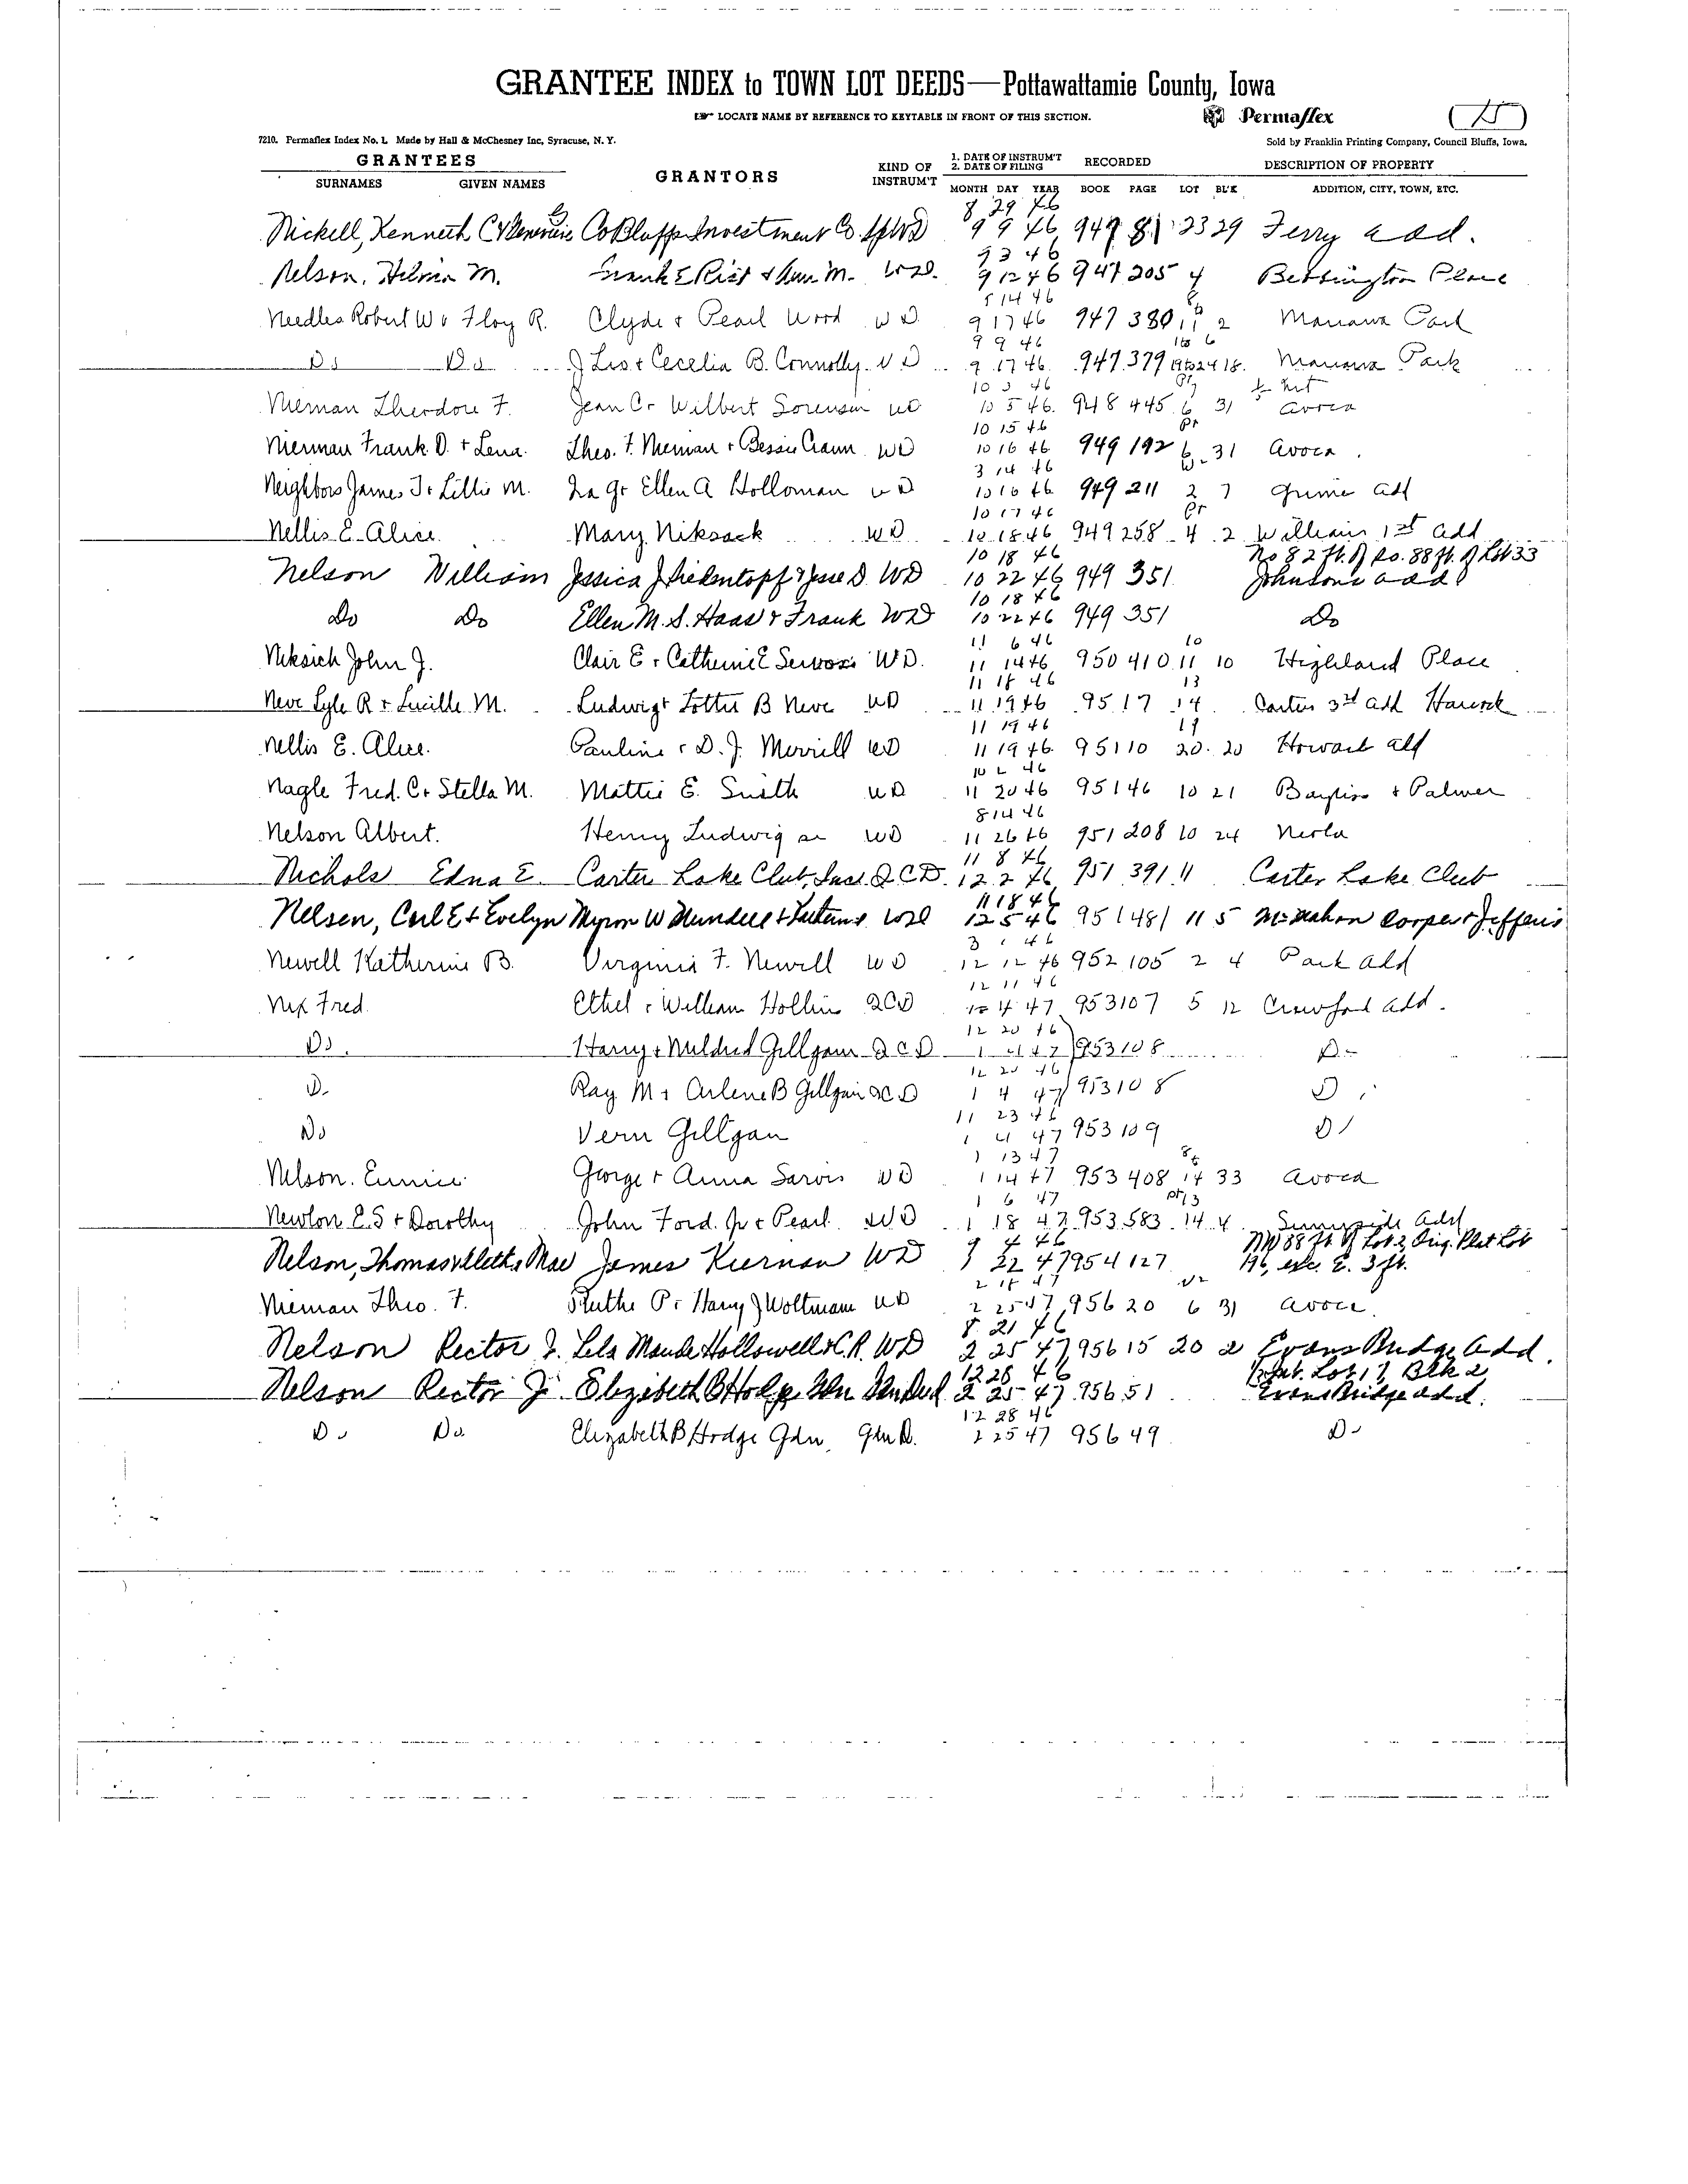 GRANTEE INDEX to TOWN LOT DEEDS—Pottawattamie County, Iowa
LOCATE NAME BY REFERENCE TO KEYTABLE IN FRONT OF THIS SECTION. Permaflex
7210. Permaflex Index No. 1. Made by Hall & McChesney Inc, Syracuse, N. Y. Sold by Franklin Printing Company, Council Bluffs, Iowa.
GRANTEES GRANTORS KIND OF INSTRUM'T 1. DATE OF INSTRUM'T 2. DATE OF FILING RECORDED DESCRIPTION OF PROPERTY
SURNAMES GIVEN NAMES MONTH DAY YEAR BOOK PAGE LOT BL'K ADDITION, CITY, TOWN, ETC.
8 29 46
Nickell, Kenneth C & Co Bluffs Investment Co. SpWD 9 9 46 947 81 23 29 Ferry add.
9 3 46
Nelson, Hilma M. Frank E Rist & M. WD. 9 12 46 947 205 4 Bebbington Place
5 14 46
Needles Robert W + Floy R. Clyde + Pearl Wood WD 9 17 46 947 380 11 2 Manawa Park
9 9 46 1 to 6
Do Do J Leo + Cecelia B. Connolly WD 9 17 46 947 379 19to24 18 Manawa Park
10 3 46 Pt
Nieman Theodore F. Jean C + Wilbert Sorensen WD 10 5 46 948 445 6 31 Avoca
10 15 46 Pt
Nierman Frank D. + Lena Theo. F. Nieman + Bessie WD 10 16 46 949 192 6 31 Avoca
3 14 46 W
Neighbors James J + Lillie M. Ira G + Ellen A Holloman WD 10 16 46 949 211 2 7 Grime add
10 17 46 Pt
Nellis E. Alice Mary Niksack WD 10 18 46 949 258 4 2 William 1st add
10 18 46 No 82 ft. of So. 88 ft. of Lot 33
Nelson William Jessica J & Jesse D. WD 10 22 46 949 351 Johnsons add
10 18 46
Do Do Ellen M. S. Haas & Frank WD 10 22 46 949 351 Do
11 6 46 10
Niksich John J. Clair E + Catherine E WD. 11 14 46 950 410 11 10 Highland Place
11 18 46 13
Neve Lyle R + Lucille M. Ludwig + Lottie B Neve WD 11 19 46 951 7 14 Carter 3rd add Hancock
11 19 46 19
Nellis E. Alice. Pauline + D. J. Merrill WD 11 19 46 951 10 20 20 Howard add
10 2 46
Nagle Fred. C + Stella M. Mattie E. Smith WD 11 20 46 951 46 10 21 Bayliss + Palmer
8 14 46
Nelson Albert. Henry Ludwig sr WD 11 26 46 951 208 10 24 Neola
11 8 46
Nichols Edna E. Carter Lake Club, Inc. QCD. 12 2 46 951 391 11 Carter Lake Club
11 18 46
Nelsen, Carl E + Evelyn Myron W WD 12 5 46 951 481 11 5 McMahon Cooper & Jefferis
3 1 46
Newell Katherine B. Virginia F. Newell WD 12 12 46 952 105 2 4 Park add
12 11 46
Nix Fred. Ethel + William Hollins QCD 4 47 953 107 5 12 Crawford add.
12 20 46
Do. Harry + Mildred Gillgan QCD 1 4 47 953 108 Do
12 20 46
Do Ray M + Arlene B Gillgan QCD 1 4 47 953 108 Do
11 23 46
Do Vern Gillgan 1 4 47 953 109 Do
1 13 47
Nelson. Eunice George + Anna Sarvis WD 1 14 47 953 408 14 33 Avoca
1 6 47 pt 13
Newton E. S + Dorothy John Ford. Jr + Pearl WD 1 18 47 953 583 14 4 Sunnyside Add
9 4 46 NW 88 ft of Lot 2, Orig. Plat Lot
Nelson, Thomas & Mae James Kiernan WD 1 22 47 954 127 196, exc. E. 3 ft.
2 18 47
Nieman Theo. F. Ruthe P + Harry J Woltmann WD 2 25 47 956 20 6 31 Avoca
8 21 46
Nelson Rector J. Lela Maude Hollowell & C. R. WD 2 25 47 956 15 20 2 Evans Bridge Add.
12 28 46 Int. Lot 17, Blk 2
Nelson Rector J. Elizabeth B Hodge Gdn 2 25 47 956 51 Evans Bridge add.
12 28 46
Do Do Elizabeth B Hodge Gdn. Gdn D. 2 25 47 956 49 Do